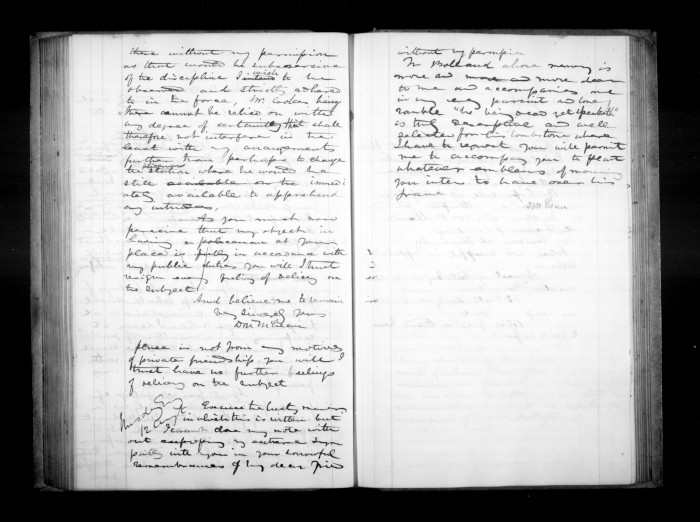 there without my permission
as that would be subversive
of the discipline I wish to be
observed and strictly adhered
to in the force, Mr Cooke's being
there cannot be relied on with
any degree of certainty that shall
therefore not interfere in the
least with my arrangements
further than perhaps to change
the station where he would be
still available on the immedi
ately available to apprehend
any
As you must now
perceive that my object in
having a policeman at your
place is in accordance with
my public duties you will I trust
resign every feeling of delicacy on
the subject
And believe me to remain
Very sincerely yours
D McLean
place is not from any motives
of private friendship you will I
trust have no further feelings
of delicacy on the subject
My dear
12 Aug
Excuse the hasty manner
in which this is written but
I cannot close my note with
out expressing my extreme sym
pathy with you in your sorrowful
remembrances of my dear
without my permission
whose memory is
more and more and more dear
to me and accompanies me
in my every pursuit and lone
ramble "he being dead yet speaketh"
is truly descriptive and well
selected for his tombstone where
I have to request you will permit
me to accompany you to plant
whatever emblems of mourning
you intend to have over his
grave
D McLean